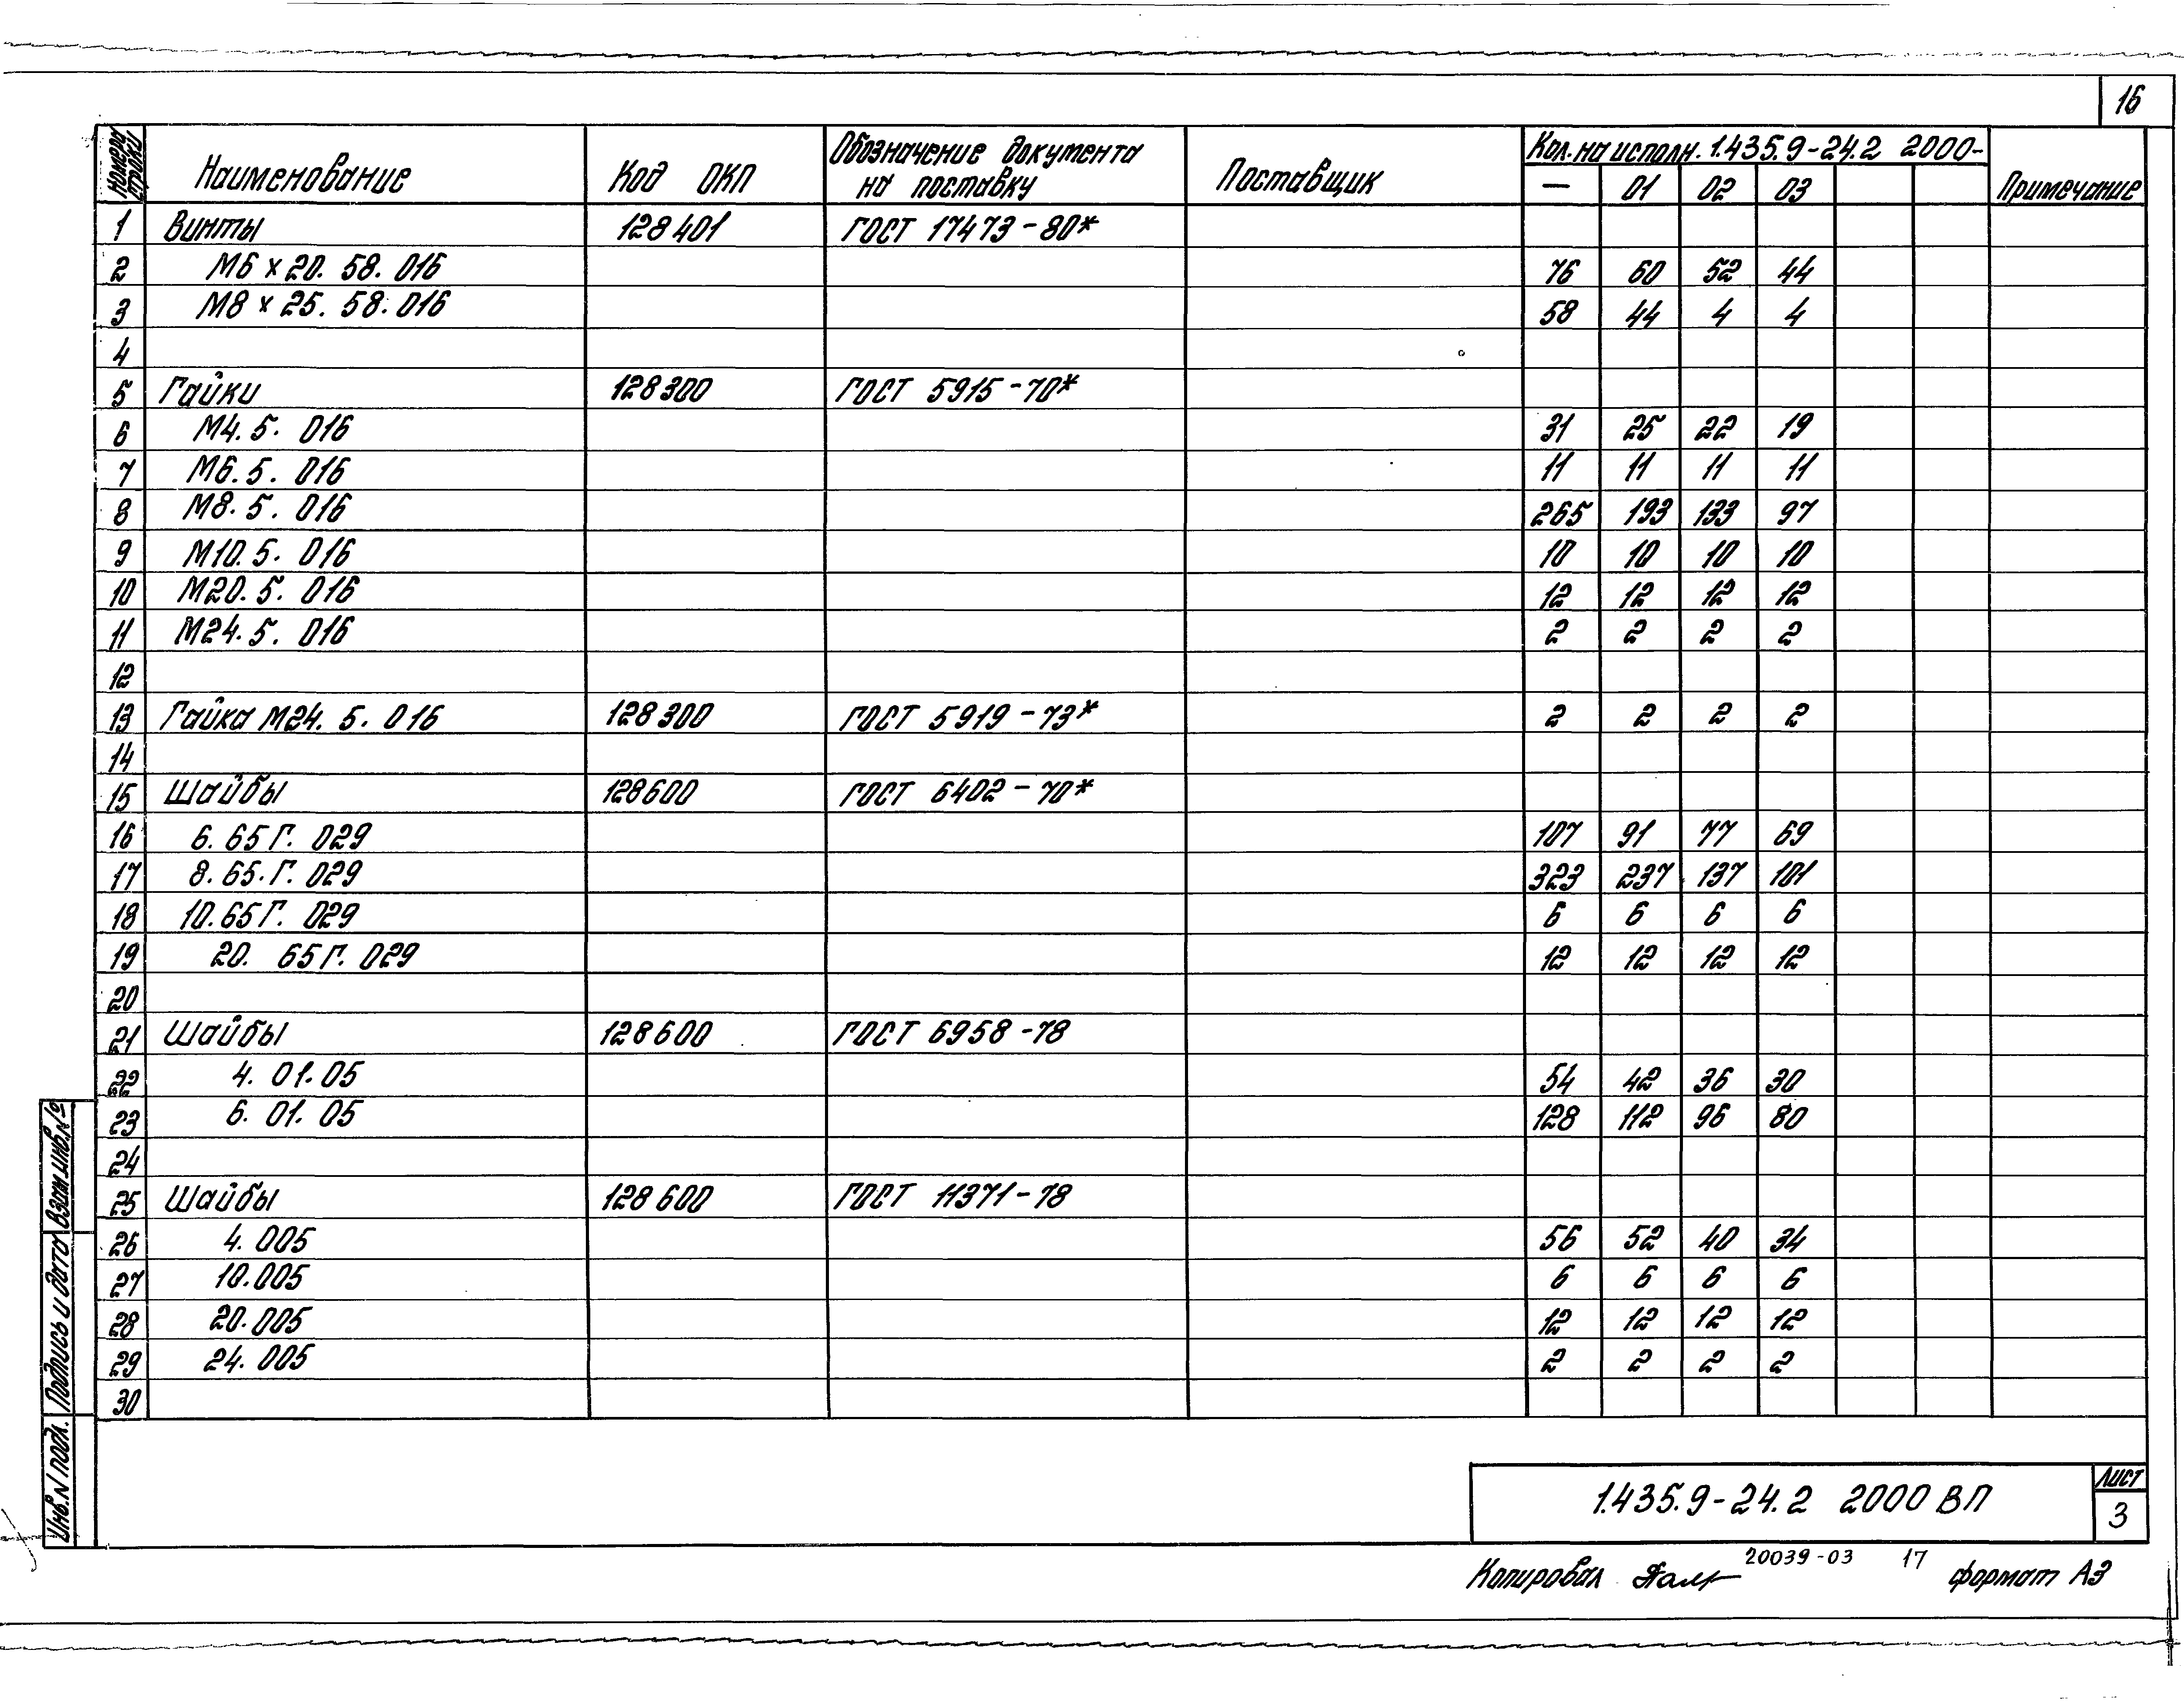 16
Номера строки
Наименование
Код ОКП
Обозначение документа
на поставку
Поставщик
Кол. на исполн. 1.435.9-24.2 2000-
— 01 02 03
Примечание
1 Винты 128401 ГОСТ 17473-80*
2 М6 х 20. 58. 016 76 60 52 44
3 М8 х 25. 58. 016 58 44 4 4
4
5 Гайки 128300 ГОСТ 5915-70*
6 М4. 5. 016 31 25 22 19
7 М6. 5. 016 11 11 11 11
8 М8. 5. 016 265 193 133 97
9 М10. 5. 016 10 10 10 10
10 М20. 5. 016 12 12 12 12
11 М24. 5. 016 2 2 2 2
12
13 Гайка М24. 5. 016 128300 ГОСТ 5919-73* 2 2 2 2
14
15 Шайбы 128600 ГОСТ 6402-70*
16 6. 65Г. 029 107 91 77 69
17 8. 65. Г. 029 323 237 137 101
18 10. 65Г. 029 6 6 6 6
19 20. 65Г. 029 12 12 12 12
20
21 Шайбы 128600 ГОСТ 6958-78
22 4. 01. 05 54 42 36 30
23 6. 01. 05 128 112 96 80
24
25 Шайбы 128600 ГОСТ 11371-78
26 4. 005 56 52 40 34
27 10. 005 6 6 6 6
28 20. 005 12 12 12 12
29 24. 005 2 2 2 2
30
Инв. N подл. Подпись и дата Взам. инв. №
1.435.9-24.2 2000 ВП
Лист
3
Копировал
20039-03 17
формат А3